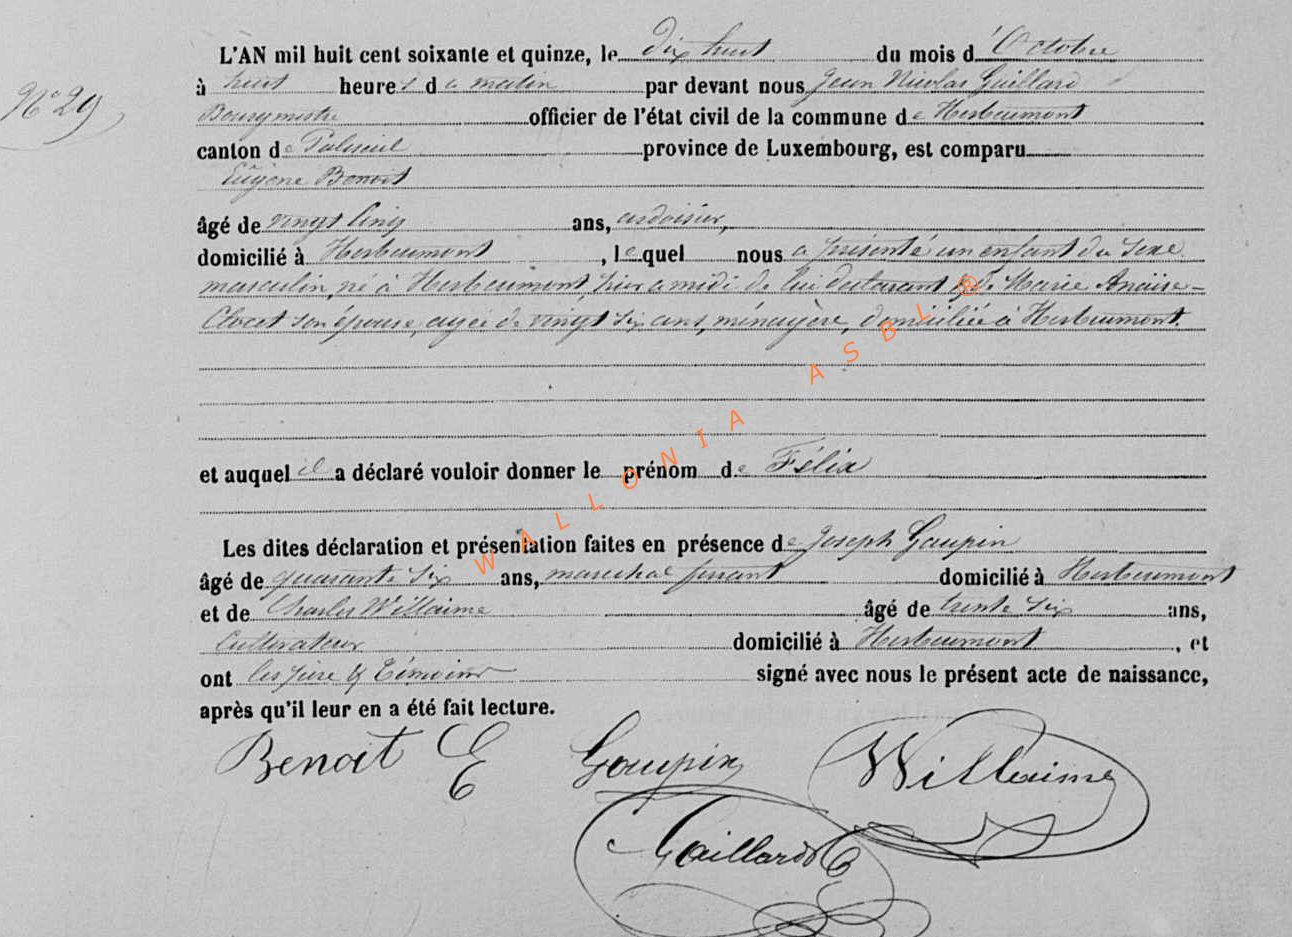 N° 29
L'AN mil huit cent soixante et quinze, le dix huit du mois d'Octobre
à huit heures da matin par devant nous Jean Nicolas Gaillard
Bourgmestre officier de l'état civil de la commune de Herbeumont
canton de Paliseul province de Luxembourg, est comparu
Eugène Benoit
âgé de vingt cinq ans, ardoisier,
domicilié à Herbeumont, lequel nous a présenté un enfant du sexe
masculin, né à Herbeumont, hier à midi de lui déclarant & de Marie Anaïse-
Clocet son épouse, agée de vingt six ans, ménagère, domiciliée à Herbeumont.
et auquel il a déclaré vouloir donner le prénom de Félix
Les dites déclaration et présentation faites en présence de Joseph Goupin
âgé de quarante six ans, maréchal ferrant domicilié à Herbeumont
et de Charles Willaime âgé de trente six ans,
Cultivateur domicilié à Herbeumont, et
ont les père & témoins signé avec nous le présent acte de naissance,
après qu'il leur en a été fait lecture.
Benoit E Goupin Willaime
Gaillard
WALLONIA ASBL ®